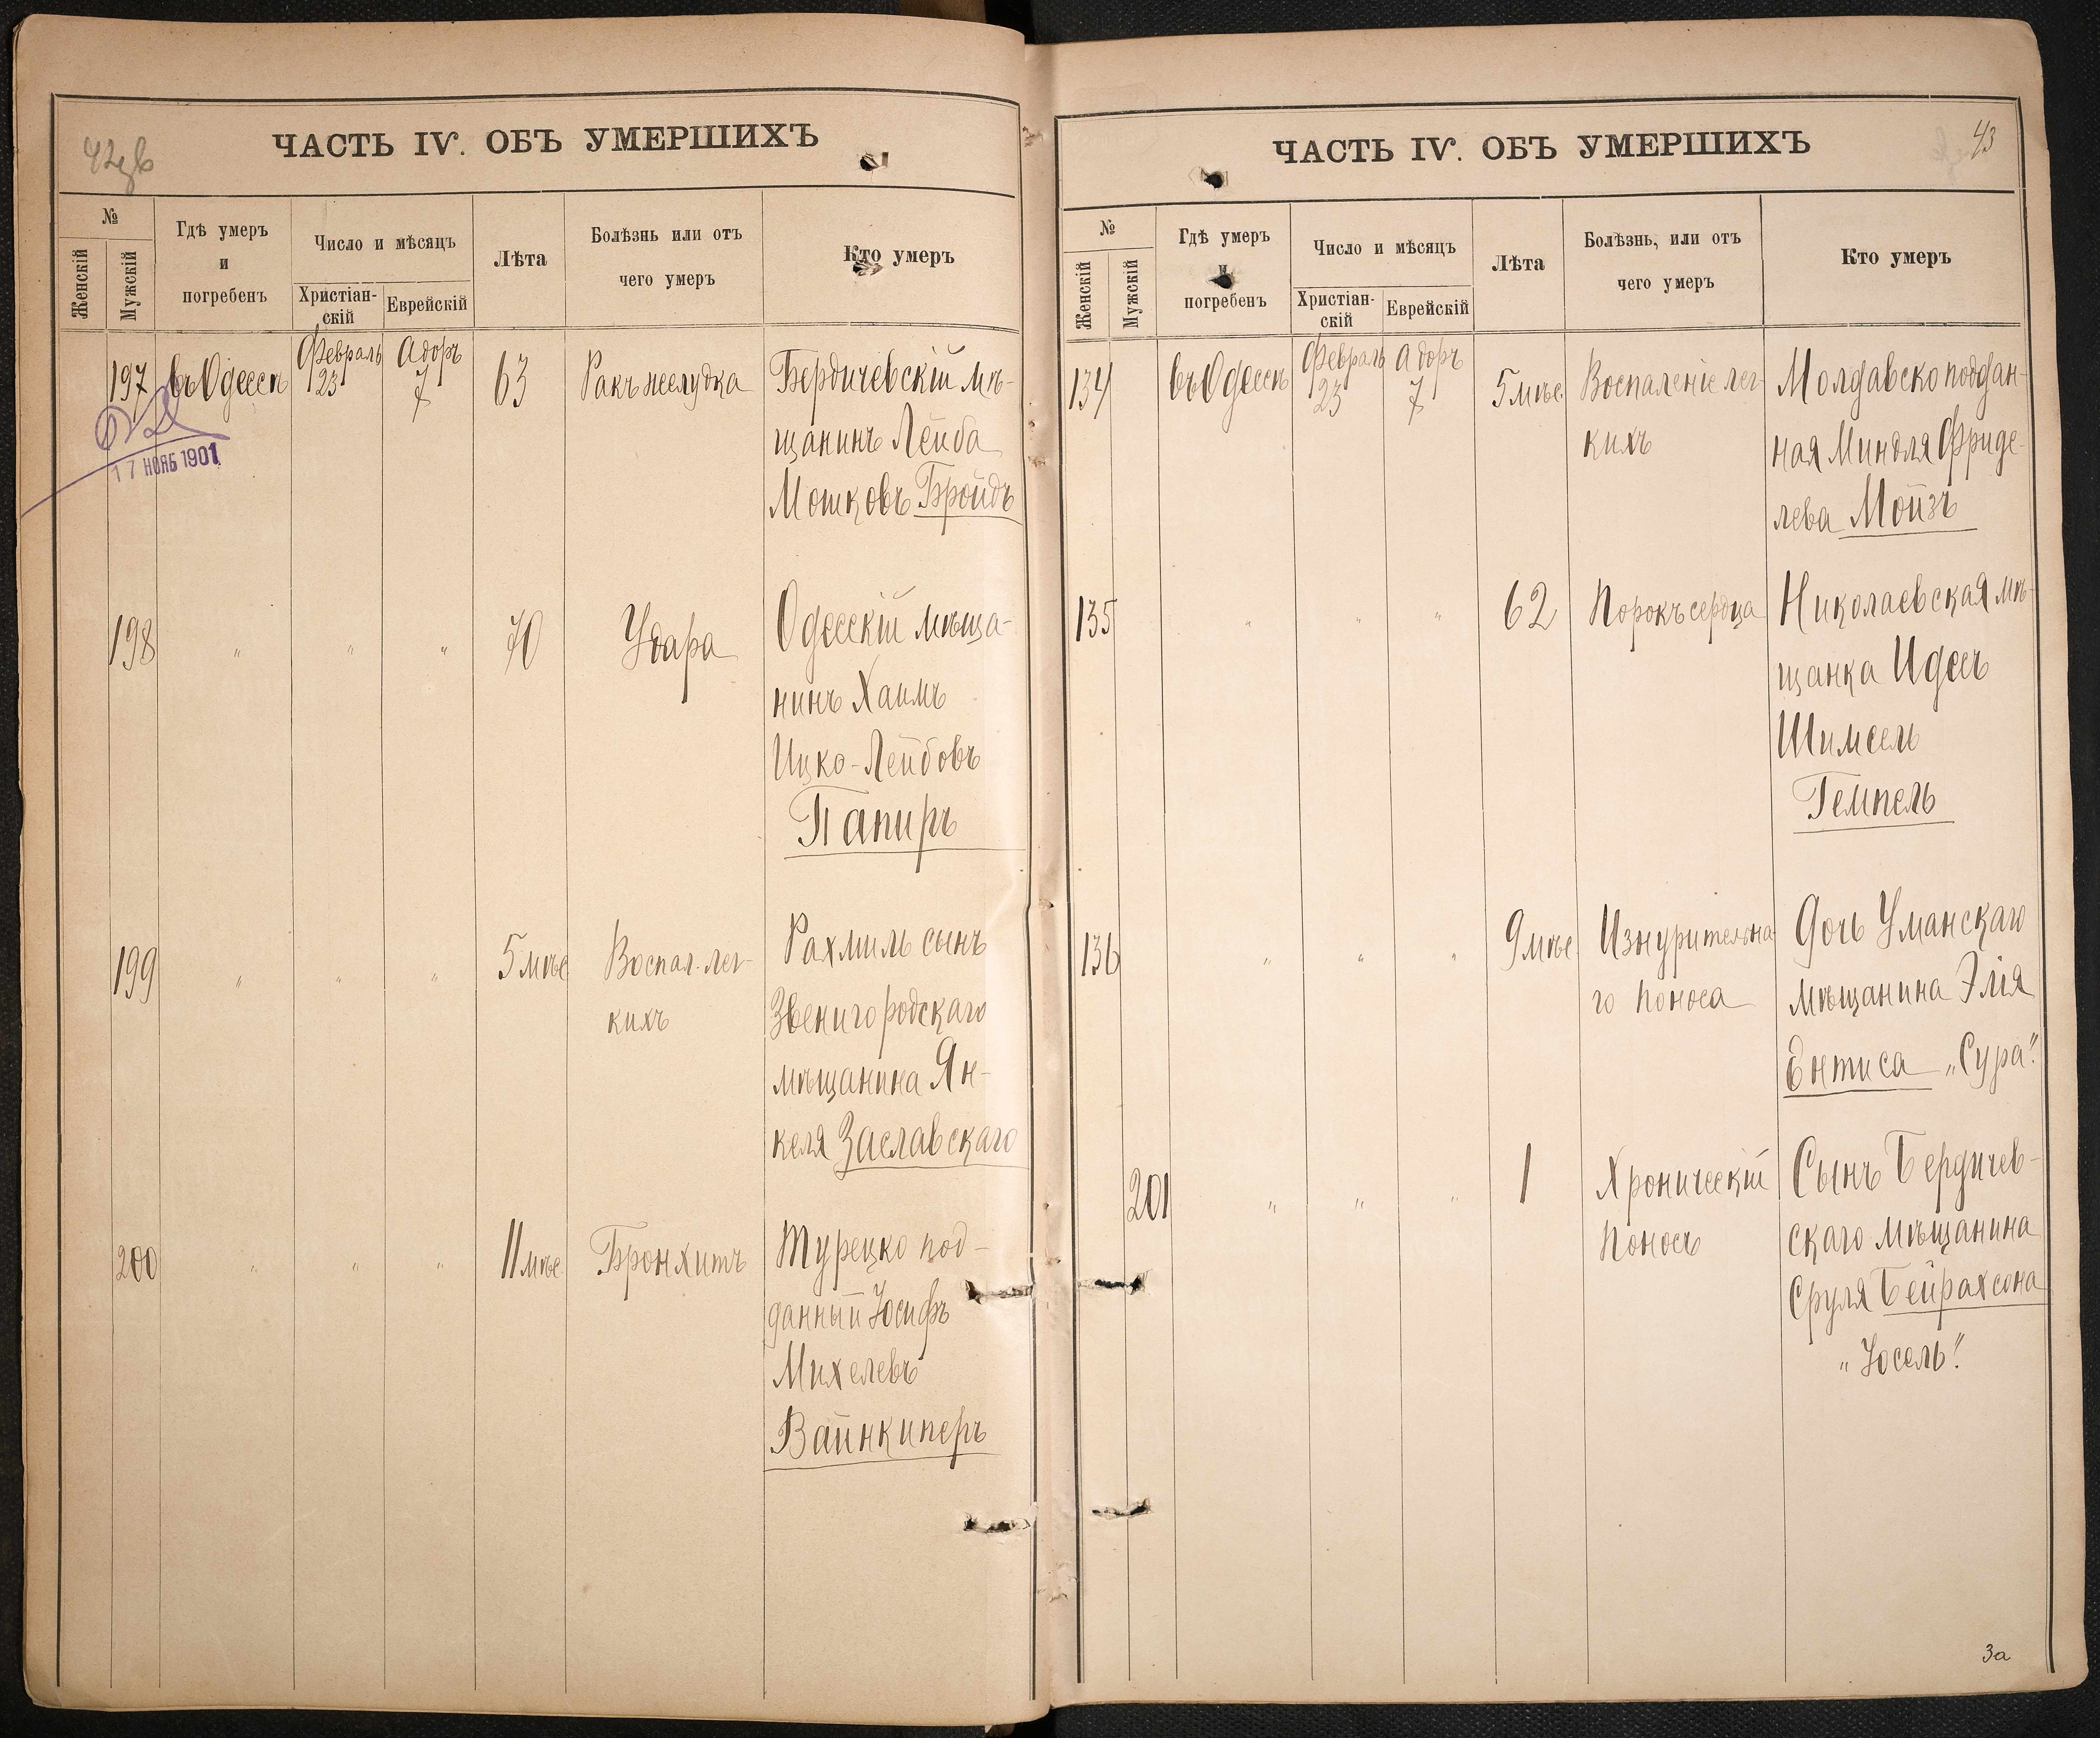 42 об
ЧАСТЬ IV. ОБЪ УМЕРШИХЪ
№
Женскій
Мужскій
Гдѣ умеръ
и
погребенъ
Число и мѣсяцъ
Христіан-
скій
Еврейскій
Лѣта
Болѣзнь или отъ
чего умеръ
Кто умеръ
197 въ Одессѣ Февраль 23 Адоръ 7 63 Ракъ желудка Бердичевскій мѣ-
щанинъ Лейба
Мошковъ Бройдъ
17 НОЯБ 1901
198 " " " 70 Удара Одесскій мѣща-
нинъ Хаимъ
Ицко-Лейбовъ
Папиръ
199 " " " 5 мѣс. Воспал. лег- Рахмиль сынъ
кихъ Звенигородскаго
мѣщанина Ян-
келя Заславскаго
200 " " " 11 мѣс. Бронхитъ Турецко под-
данный Іосифъ
Михелевъ
Вайнкиперъ
43
ЧАСТЬ IV. ОБЪ УМЕРШИХЪ
№
Женскій
Мужскій
Гдѣ умеръ
и
погребенъ
Число и мѣсяцъ
Христіан-
скій
Еврейскій
Лѣта
Болѣзнь, или отъ
чего умеръ
Кто умеръ
134 въ Одессѣ Февраль 23 Адоръ 7 5 мѣс. Воспаленіе лег- Молдавско поддан-
кихъ ная Миндля Фриде-
лева Мойзъ
135 " " " 62 Порокъ сердца Николаевская мѣ-
щанка Идесъ
Шимсель
Темпель
136 " " " 9 мѣс. Изнурительна- Дочь Уманскаго
го поноса мѣщанина Элія
Ентиса „Сура".
201 " " " 1 Хроническій Сынъ Бердичев-
поносъ скаго мѣщанина
Сруля Бейрахсона
„Іосель".
3а